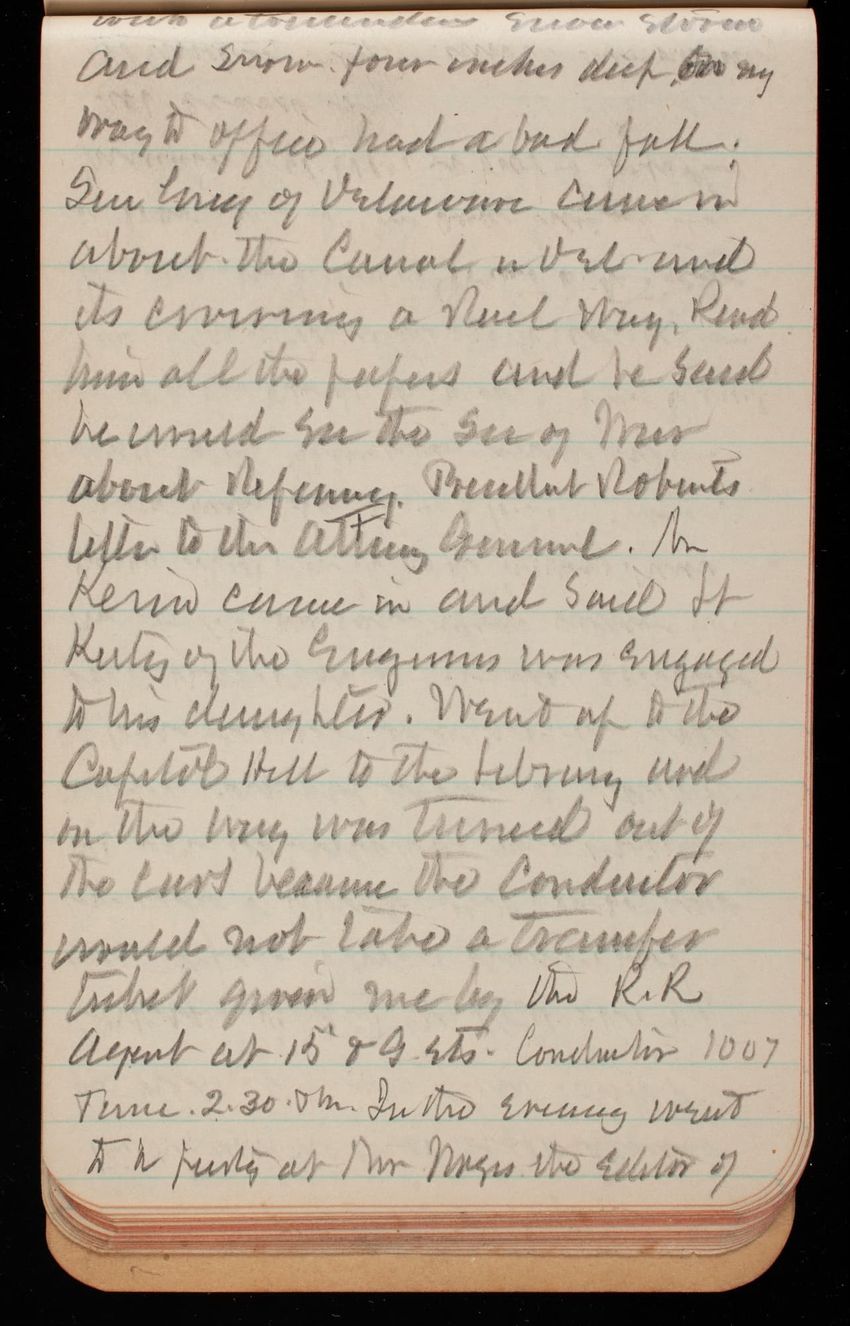 with a tremendous snow storm
and snow four inches deep, On my
way to office had a bad fall.
Sen Gray of Delaware came in
about the Canal in Del and
its crossing a Rail Way. Read
him all the papers and he said
he would see the Sec of War
about Refering President Roberts
letter to the Attorney General. Mr
Kerin came in and said Lt
of the Engineers was engaged
to his daughter. Went up to the
Capitol Hill to the Library and
on the way was turned out of
the cars because the Conductor
would not take a transfer
ticket given me by the R.R
Agent at 15 & G sts. Conductor 1007
Time. 2.30. Pm. In the evening went
to a party at Mr Noyes the Editor of